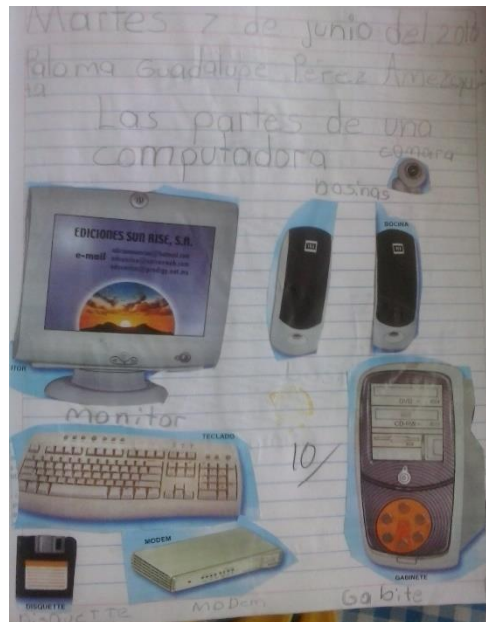 Martes 7 de junio del 2016
Paloma Guadalupe Pérez Amezqui
ta
Las partes de una
computadora
camara
bosinas
BOCINA
EDICIONES SUN RISE, S.A.
e-mail
monitor
TECLADO
10/
MODEM
DISQUETTE
Disquette
Modem
GABINETE
Gabite